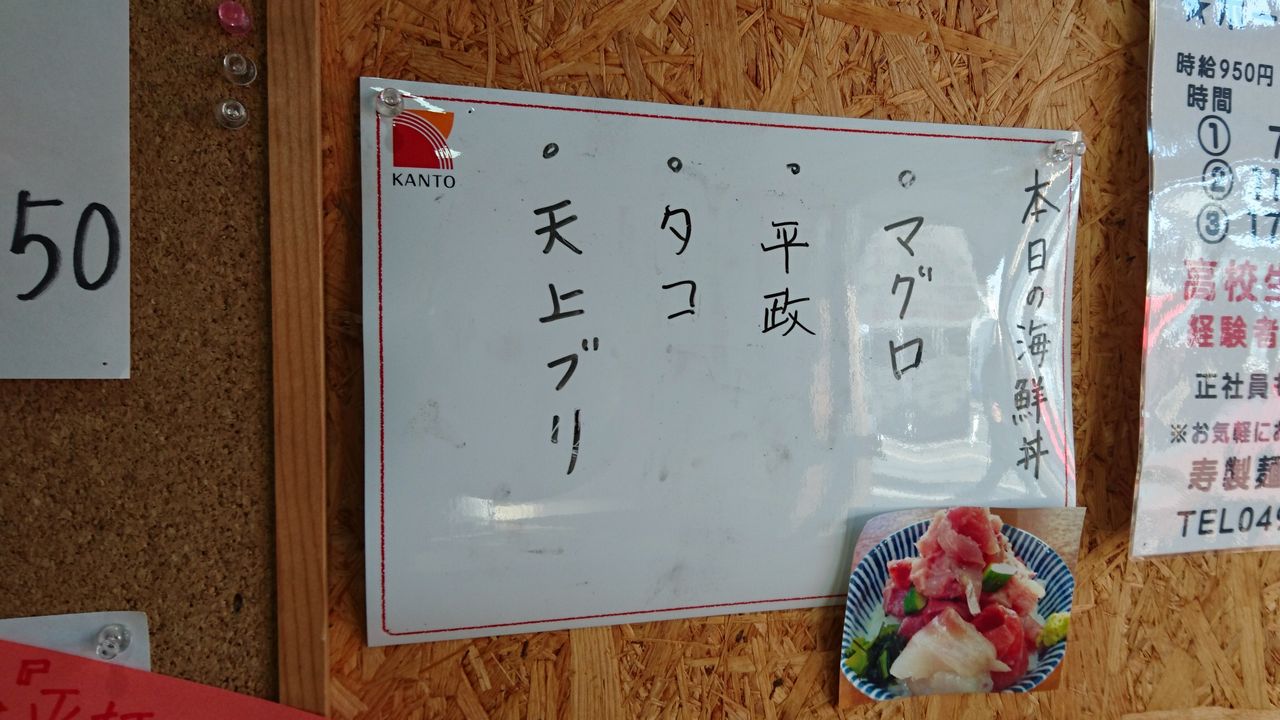 本日の海鮮丼
。マグロ
。平政
。タコ
。天上ブリ
KANTO
50
時給950円
時間
①
②
③ 17
高校生
経験者
正社員
※お気軽に
寿製麺
TEL049